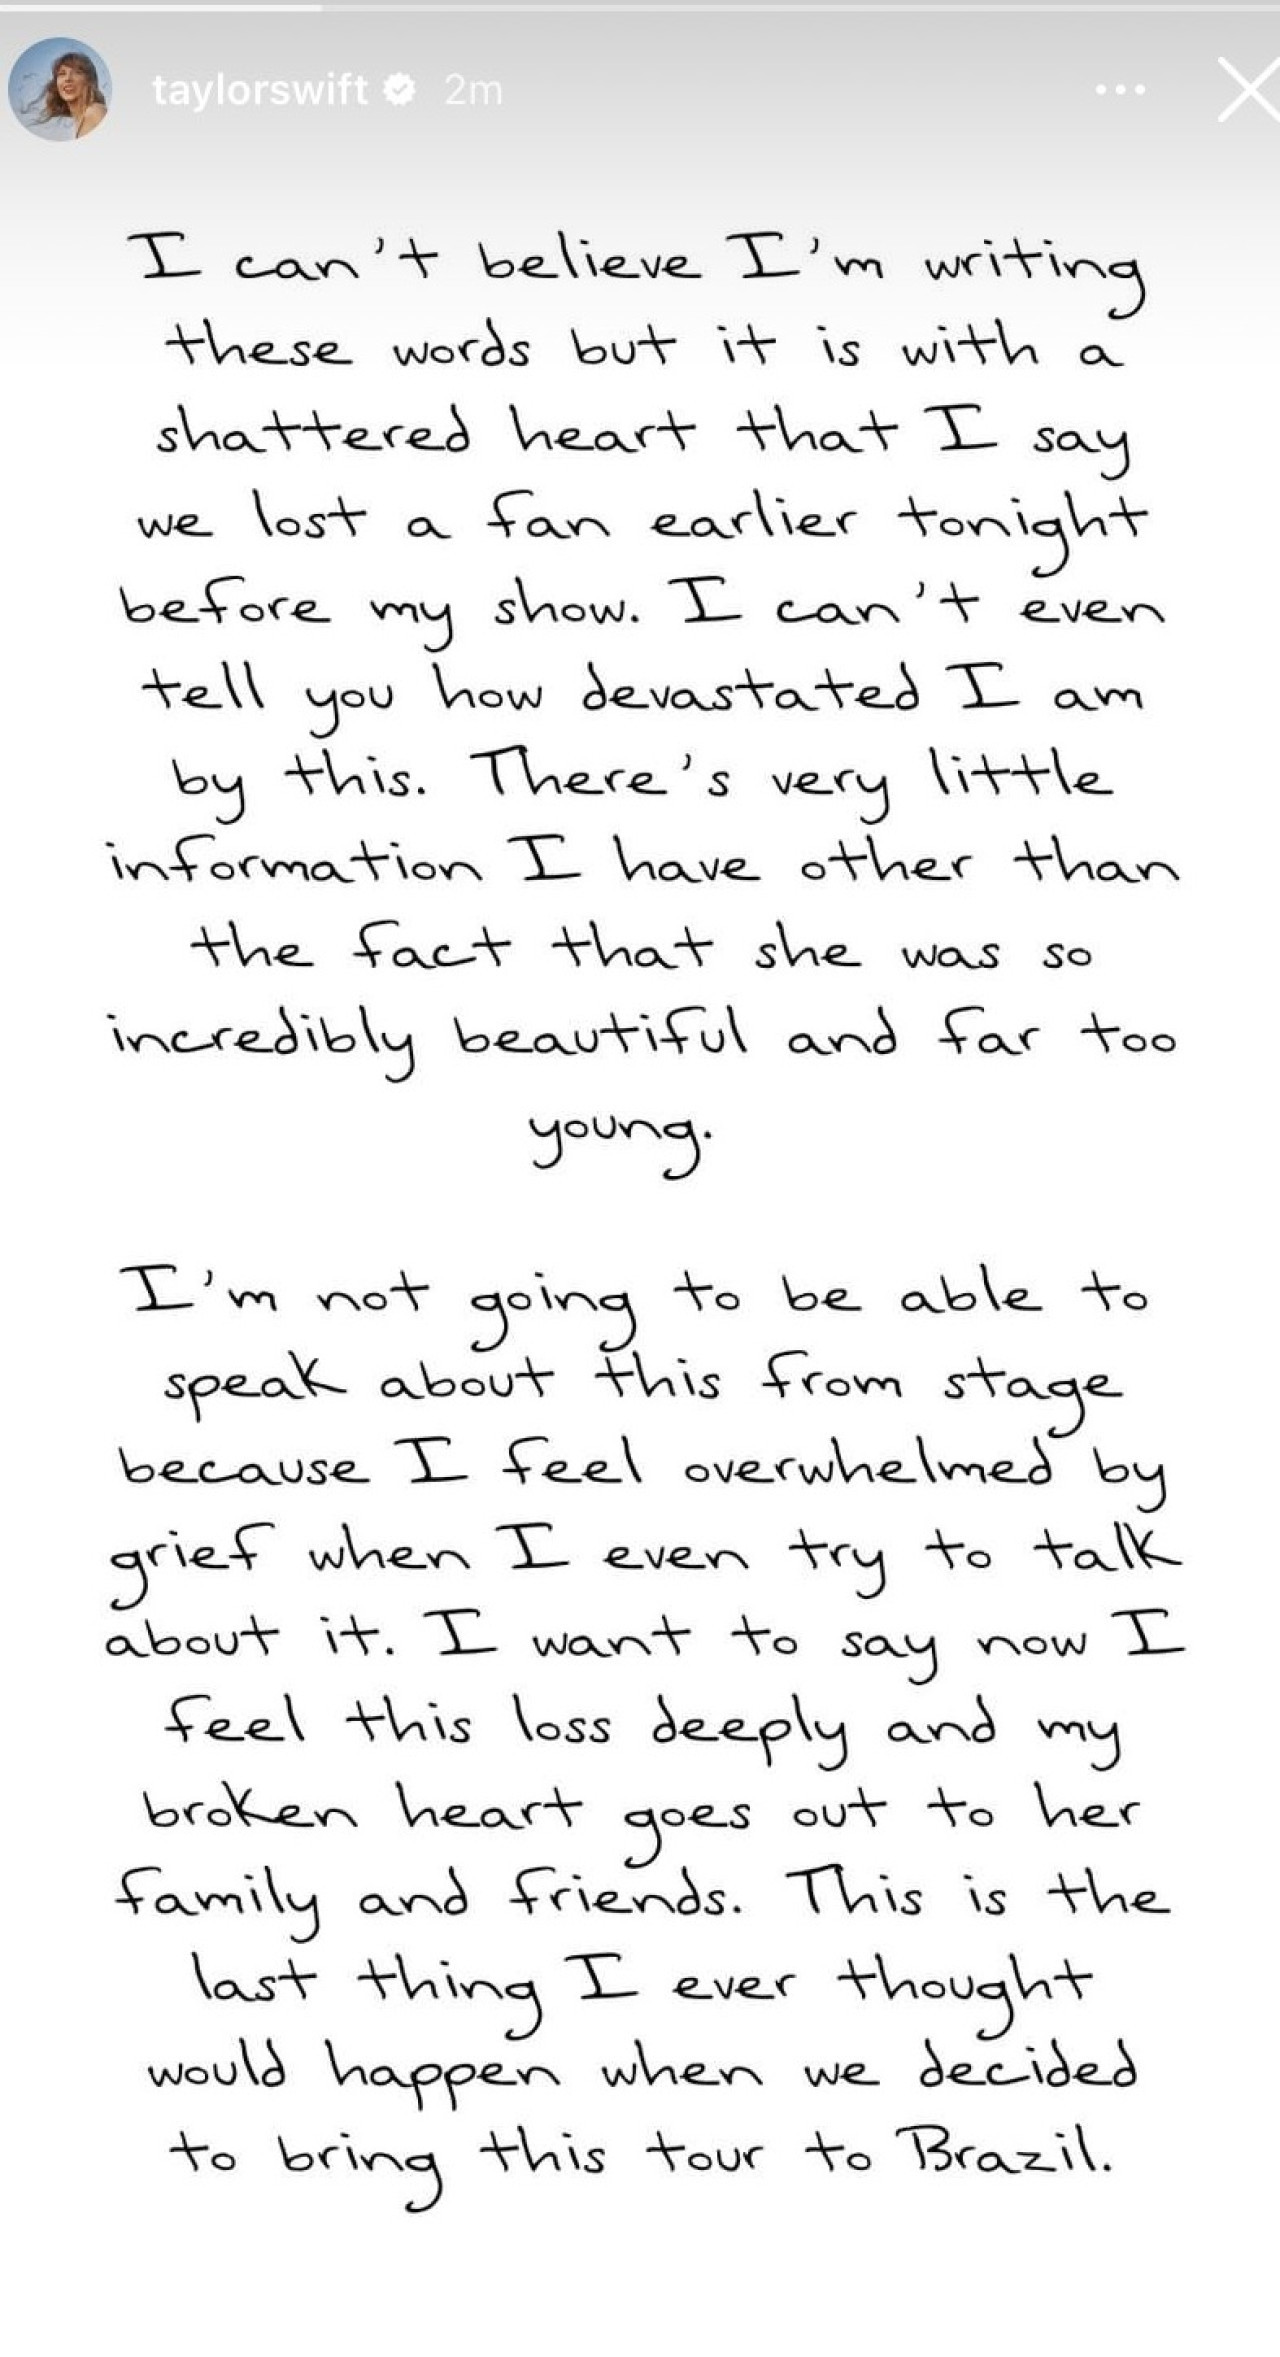 taylorswift 2m
I can't believe I'm writing
these words but it is with a
shattered heart that I say
we lost a fan earlier tonight
before my show. I can't even
tell you how devastated I am
by this. There's very little
information I have other than
the fact that she was so
incredibly beautiful and far too
young.
I'm not going to be able to
speak about this from stage
because I feel overwhelmed by
grief when I even try to talk
about it. I want to say now I
feel this loss deeply and my
broken heart goes out to her
family and friends. This is the
last thing I ever thought
would happen when we decided
to bring this tour to Brazil.